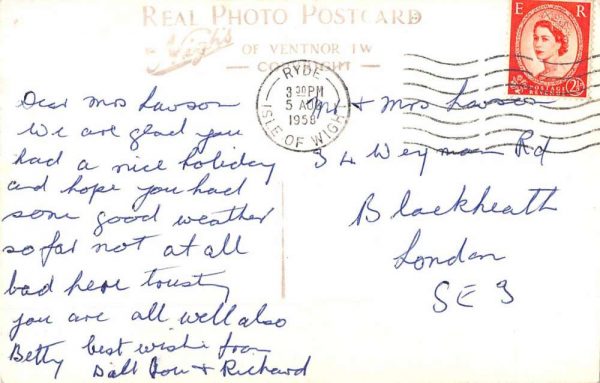 REAL PHOTO POSTCARD
Nigh's
OF VENTNOR I W
COPYRIGHT
E R
POSTAGE REVENUE
2½D
RYDE
3 30 PM
5 AUG
1958
ISLE OF WIGHT
Dear Mrs Lawson
We are glad you
had a nice holiday
and hope you had
some good weather
so far not at all
bad here trusting
you are all well also
Betty best wishes from
& Richard
Mr & Mrs Lawson
34 Weyman Rd
Blackheath
London
SE 3